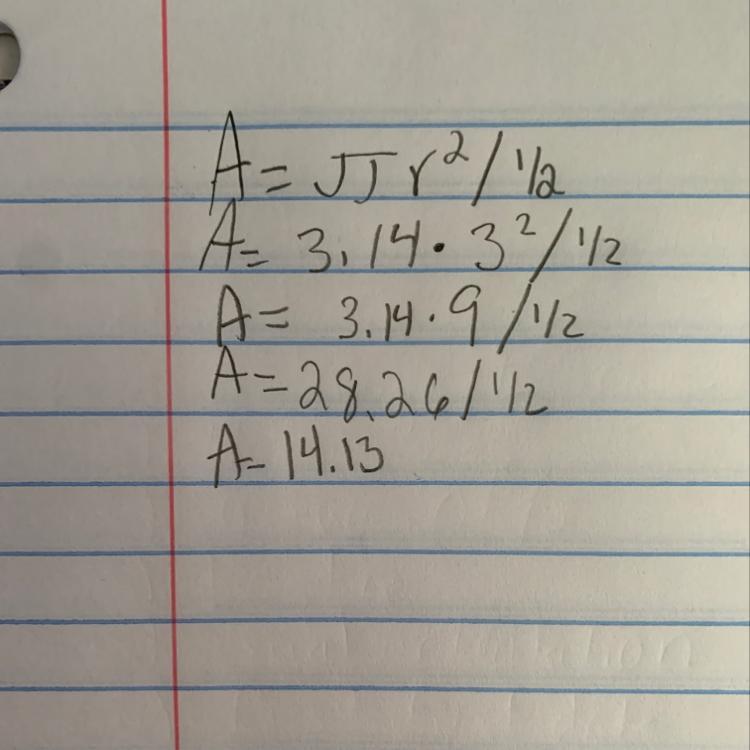 A = π r² / 1/2
A = 3.14 · 3² / 1/2
A = 3.14 · 9 / 1/2
A = 28.26 / 1/2
A = 14.13